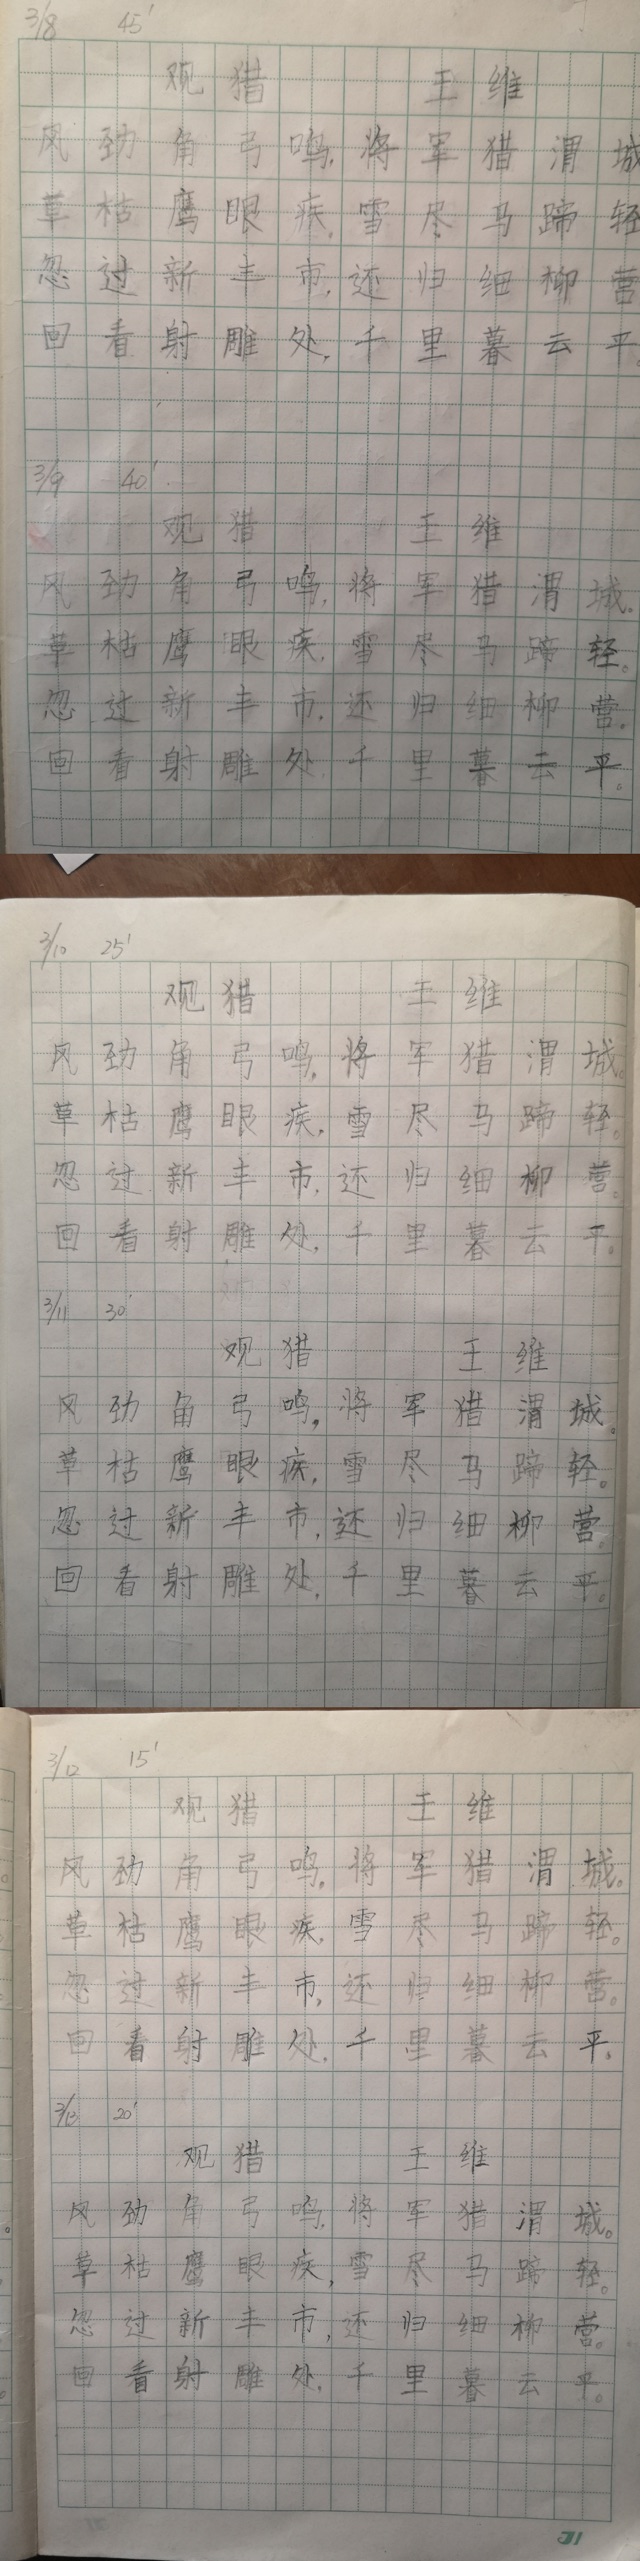 3/8 45'
观猎 王维
风劲角弓鸣,将军猎渭城
草枯鹰眼疾,雪尽马蹄轻
忽过新丰市,还归细柳营
回看射雕处,千里暮云平。
3/9 40'
观猎 王维
风劲角弓鸣,将军猎渭城。
草枯鹰眼疾,雪尽马蹄轻。
忽过新丰市,还归细柳营。
回看射雕处,千里暮云平。
3/10 25'
观猎 王维
风劲角弓鸣,将军猎渭城。
草枯鹰眼疾,雪尽马蹄轻。
忽过新丰市,还归细柳营。
回看射雕处,千里暮云平。
3/11 30'
观猎 王维
风劲角弓鸣,将军猎渭城。
草枯鹰眼疾,雪尽马蹄轻。
忽过新丰市,还归细柳营。
回看射雕处,千里暮云平。
3/12 15'
观猎 王维
风劲角弓鸣,将军猎渭城。
草枯鹰眼疾,雪尽马蹄轻。
忽过新丰市,还归细柳营。
回看射雕处,千里暮云平。
3/13 20'
观猎 王维
风劲角弓鸣,将军猎渭城。
草枯鹰眼疾,雪尽马蹄轻。
忽过新丰市,还归细柳营。
回看射雕处,千里暮云平。
31